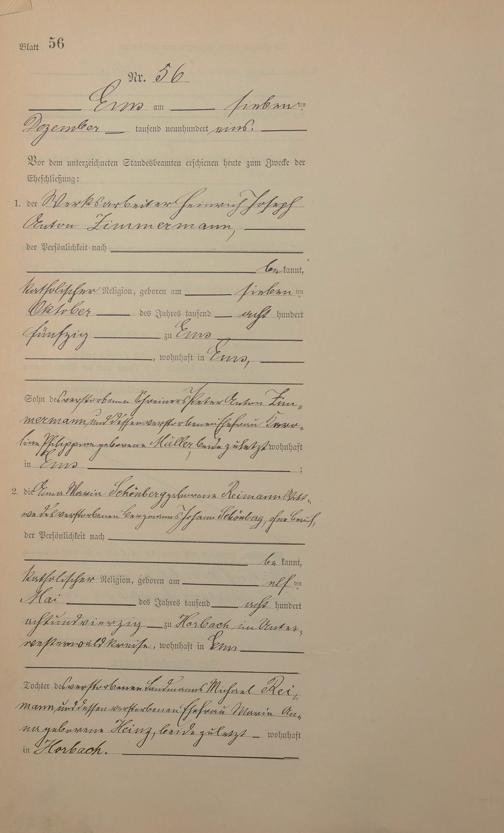 Blatt 56
Nr. 56
Ems am sieben ten
Dezember tausend neunhundert eins.
Vor dem unterzeichneten Standesbeamten erschienen heute zum Zwecke der
Eheschließung:
1. der Werksarbeiter Heinrich Joseph
Anton Zimmermann,
der Persönlichkeit nach
be kannt,
katholischer Religion, geboren am sieben ten
Oktober des Jahres tausend acht hundert
fünfzig zu Ems
, wohnhaft in Ems,
Sohn des verstorbenen Schreiners Peter Anton Zim-
mermann, und dessen verstorbenen Ehefrau Karo-
line Philippine geborene Müller, beide zuletzt wohnhaft
in Ems ;
2. die Anna Maria Schönberg geborene Reimann, Wit-
we des verstorbenen Bergmanns Johann Schönberg, ohne Beruf,
der Persönlichkeit nach
be kannt,
katholischer Religion, geboren am elf ten
Mai des Jahres tausend acht hundert
achtundvierzig zu Horbach im Unter-
westerwaldkreise, wohnhaft in Ems
Tochter des verstorbenen Landmanns Michael Rei-
mann, und dessen verstorbenen Ehefrau Maria An-
na geborene Heinz, beide zuletzt wohnhaft
in Horbach.